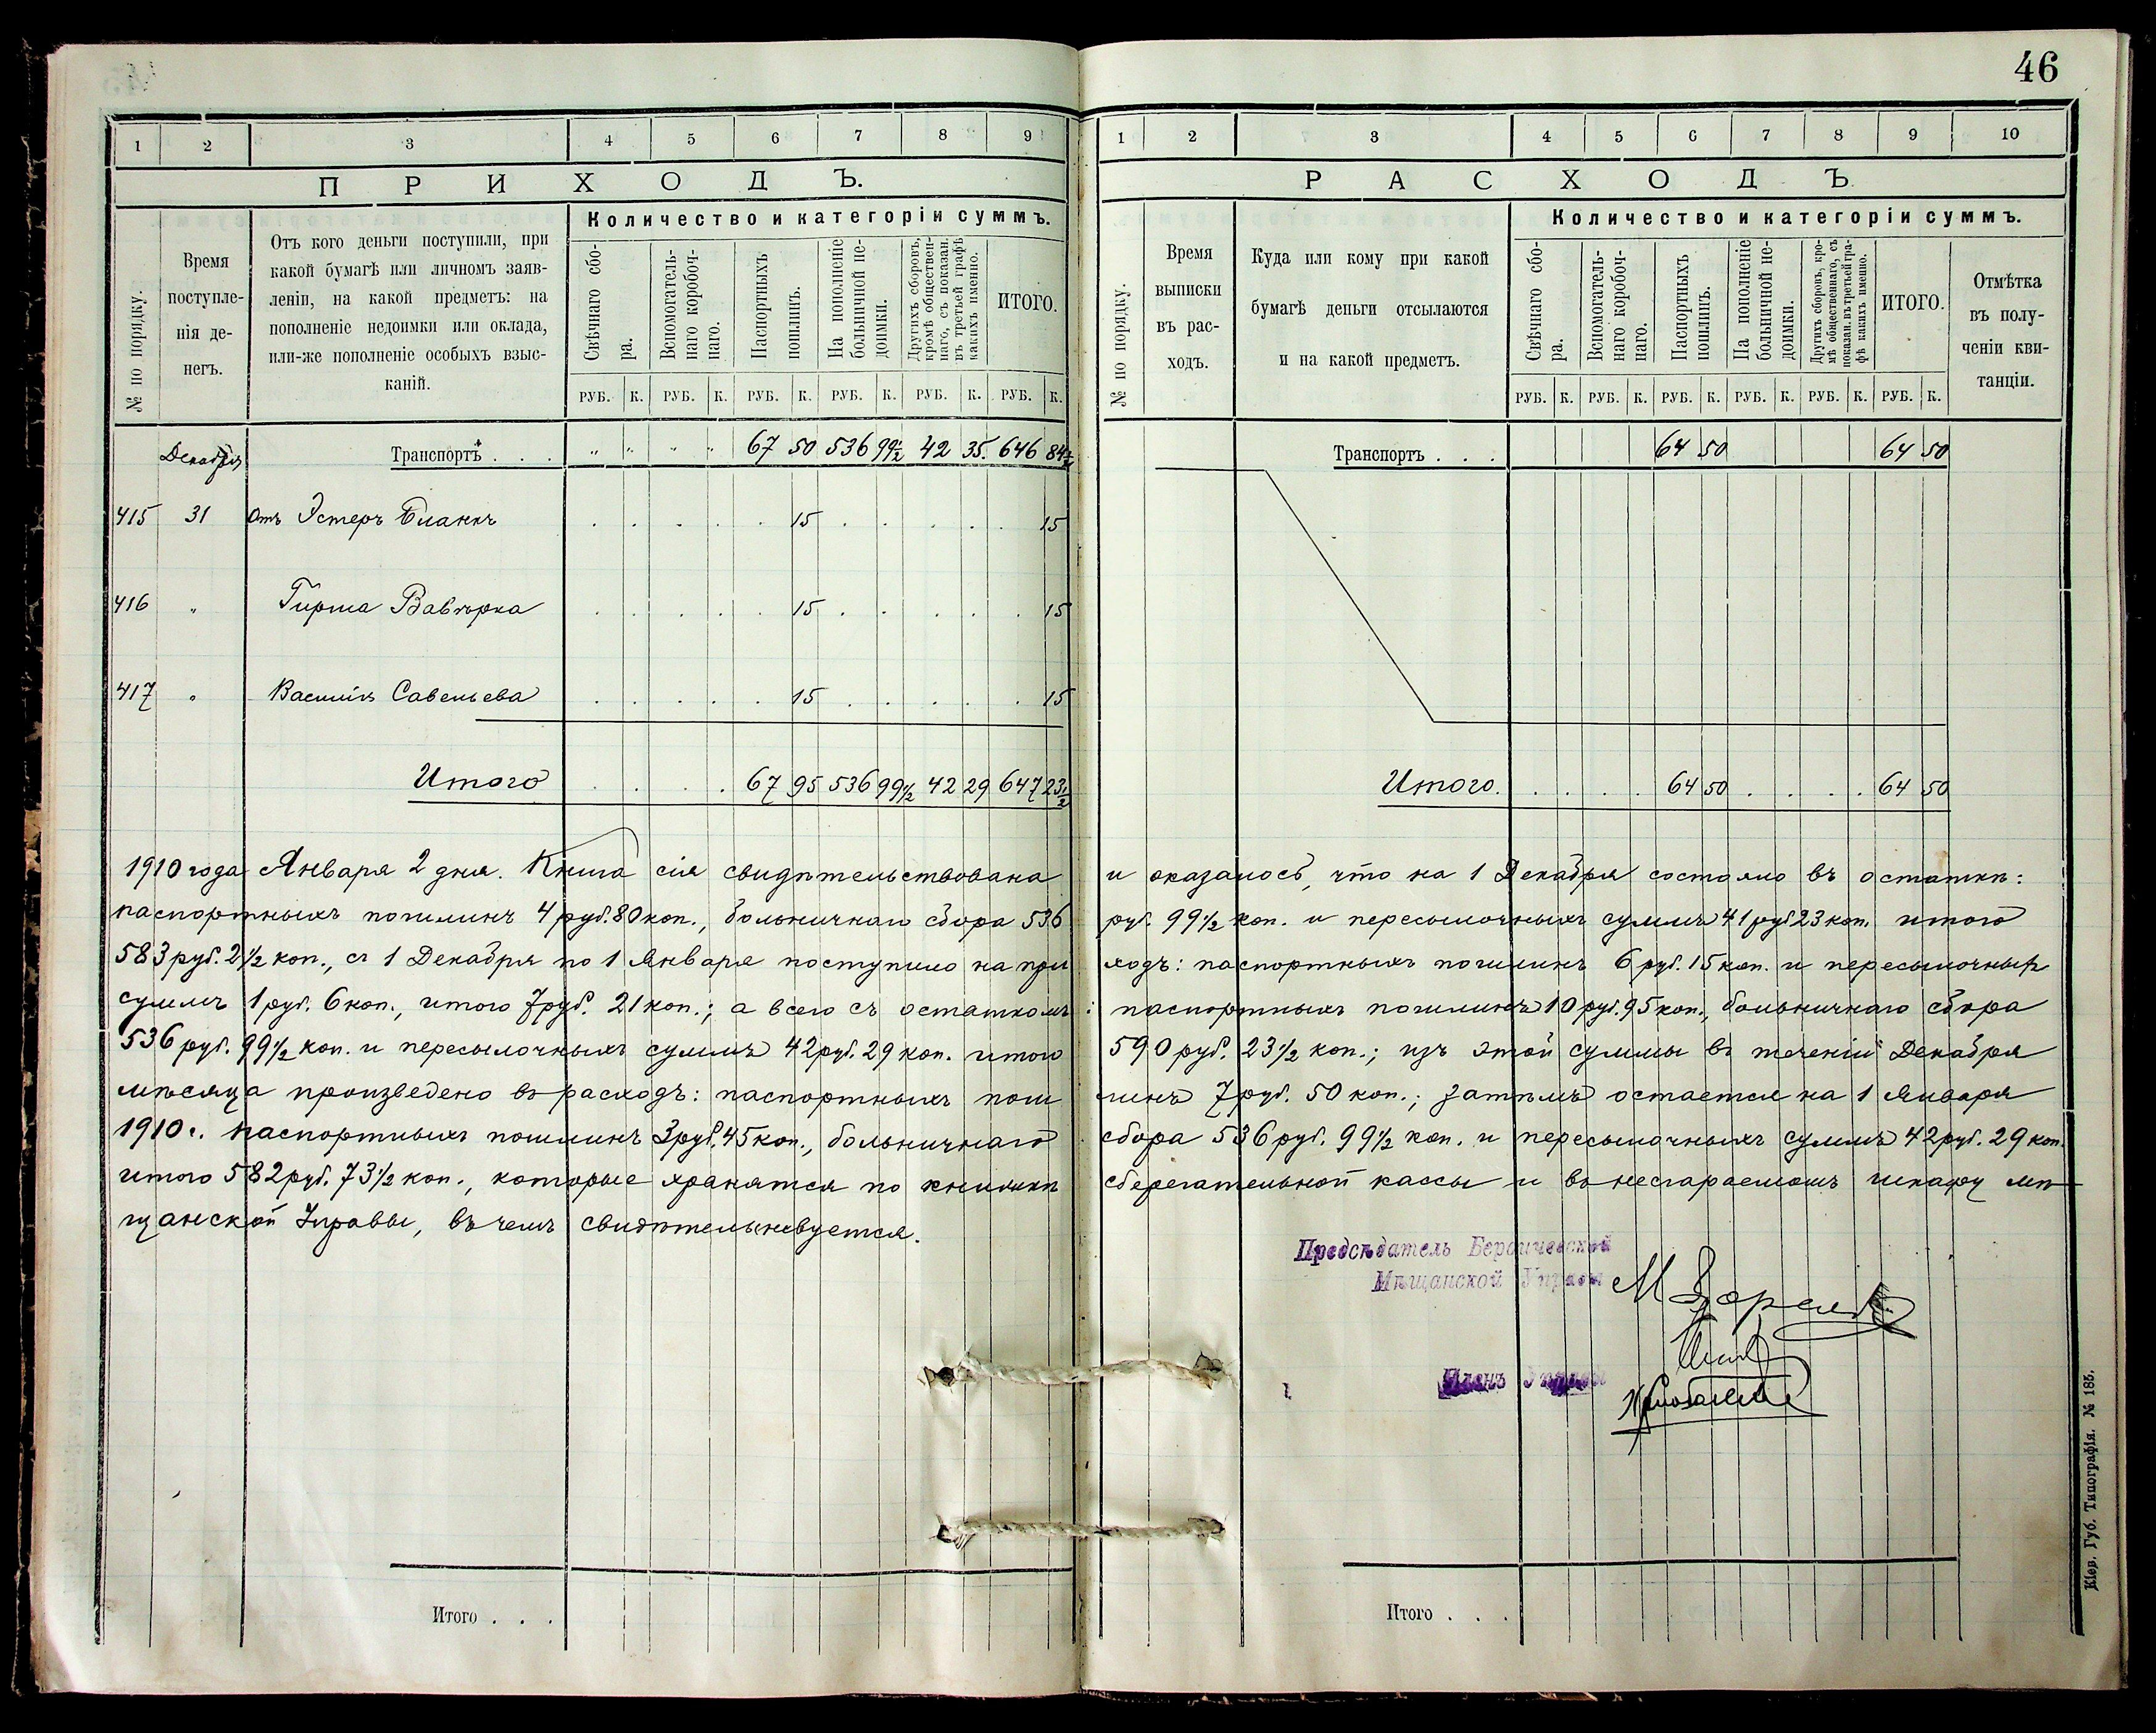 46
1 2 3 4 5 6 7 8 9
ПРИХОДЪ.
№ по порядку.
Время поступле-
нія де-
негъ.
Отъ кого деньги поступили, при
какой бумагѣ или личномъ заяв-
леніи, на какой предметъ: на
пополненіе недоимки или оклада,
или-же пополненіе особыхъ взыс-
каній.
Количество и категоріи суммъ.
Свѣчнаго сбо-
ра.
Вспомогатель-
наго коробоч-
наго.
Паспортныхъ
пошлинъ.
На пополненіе
больничной не-
доимки.
Другихъ сборовъ,
кромѣ обществен-
наго, съ показан.
въ третьей графѣ
какихъ именно.
ИТОГО.
РУБ. К. РУБ. К. РУБ. К. РУБ. К. РУБ. К. РУБ. К.
Декабря Транспортъ . . . " " " " 67 50 536 99½ 42 35. 646 84½
415 31 Отъ Эстеръ Бланкъ 15 15
416 " Гирша Вавѣрка 15 15
417 " Василія Савельева 15 15
Итого 67 95 536 99½ 42 29 647 23½
1 2 3 4 5 6 7 8 9 10
РАСХОДЪ
№ по порядку.
Время
выписки
въ рас-
ходъ.
Куда или кому при какой
бумагѣ деньги отсылаются
и на какой предметъ.
Количество и категоріи суммъ.
Свѣчнаго сбо-
ра.
Вспомогатель-
наго коробоч-
наго.
Паспортныхъ
пошлинъ.
На пополненіе
больничной не-
доимки.
Другихъ сборовъ, кро-
мѣ общественнаго, съ
показан. въ третьей гра-
фѣ какихъ именно.
ИТОГО.
Отмѣтка
въ полу-
ченіи кви-
танціи.
РУБ. К. РУБ. К. РУБ. К. РУБ. К. РУБ. К. РУБ. К.
Транспортъ . . . 64 50 64 50
Итого. 64 50 64 50
1910 года Января 2 дня. Книга сія свидѣтельствована и оказалось, что на 1 Декабря состояло въ остаткѣ:
паспортныхъ пошлинъ 4 руб. 80 коп., больничнаго сбора 536 руб. 99½ коп. и пересылочныхъ суммъ 41 руб 23 коп. итого
583 руб. 2½ коп., съ 1 Декабря по 1 Января поступило на приходъ: паспортныхъ пошлинъ 6 руб. 15 коп. и пересылочныхъ
суммъ 1 руб. 6 коп., итого 7 руб. 21 коп.; а всего съ остаткомъ: паспортныхъ пошлинъ 10 руб. 95 коп., больничнаго сбора
536 руб. 99½ коп. и пересылочныхъ суммъ 42 руб. 29 коп. итого 590 руб. 23½ коп.; изъ этой суммы въ теченіи Декабря
мѣсяца произведено въ расходъ: паспортныхъ пошлинъ 7 руб. 50 коп.; затѣмъ остается на 1 Января
1910 г. паспортныхъ пошлинъ 3 руб. 45 коп., больничнаго сбора 536 руб. 99½ коп. и пересылочныхъ суммъ 42 руб. 29 коп.
итого 582 руб. 73½ коп., которые хранятся по книжкѣ сберегательной кассы и въ несгараемомъ шкафу мѣ-
щанской Управы, въ чемъ свидѣтельствуется.
Предсѣдатель Бердичевской
Мѣщанской Управы
Членъ Управы
Итого . . .
Итого . . .
Кіев. Губ. Типографія. № 183.